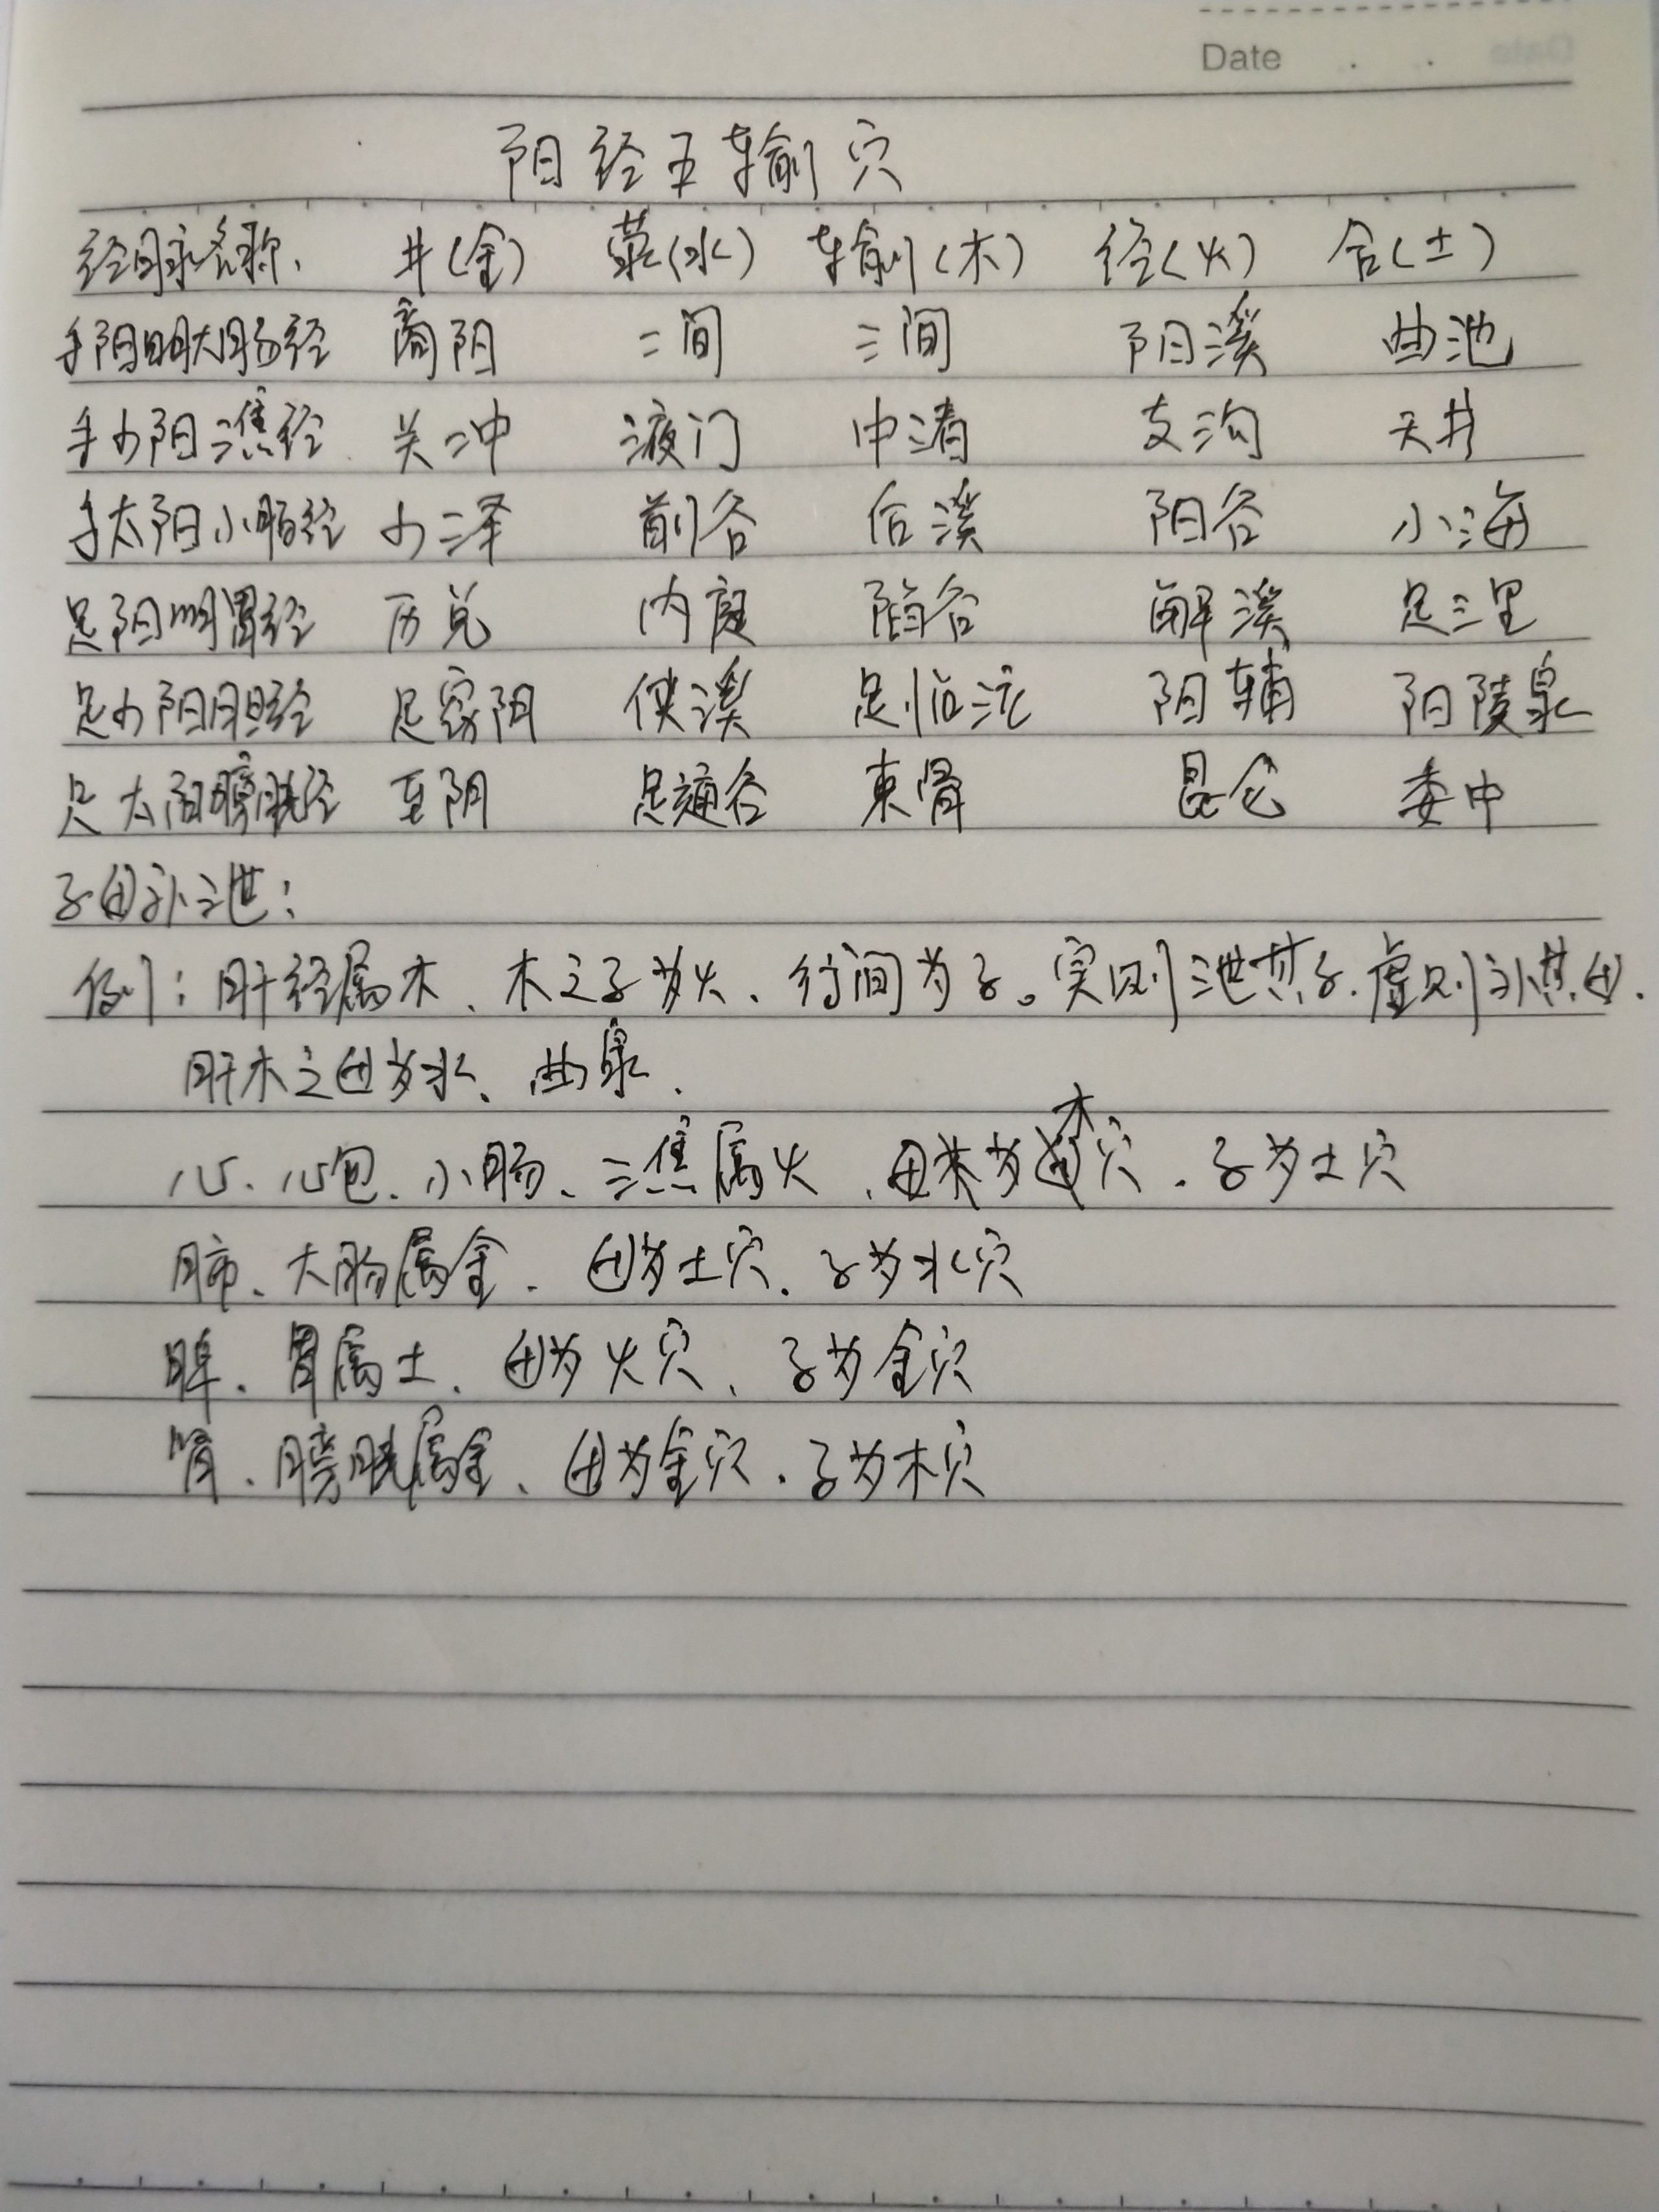 Date . .
阳经五输穴
经脉名称、 井(金) 荥(水) 输(木) 经(火) 合(土)
手阳明大肠经 商阳 二间 三间 阳溪 曲池
手少阳三焦经 关冲 液门 中渚 支沟 天井
手太阳小肠经 少泽 前谷 后溪 阳谷 小海
足阳明胃经 厉兑 内庭 陷谷 解溪 足三里
足少阳胆经 足窍阴 侠溪 足临泣 阳辅 阳陵泉
足太阳膀胱经 至阴 足通谷 束骨 昆仑 委中
子母补泄:
例:肝经属木、木之子为火、行间为子。实则泄其子.虚则补其母.
肝木之母为水、曲泉.
心、心包、小肠、三焦属火、母为木穴.子为土穴
肺、大肠属金.母为土穴.子为水穴
脾、胃属土、母为火穴、子为金穴
肾、膀胱属金、母为金穴.子为木穴